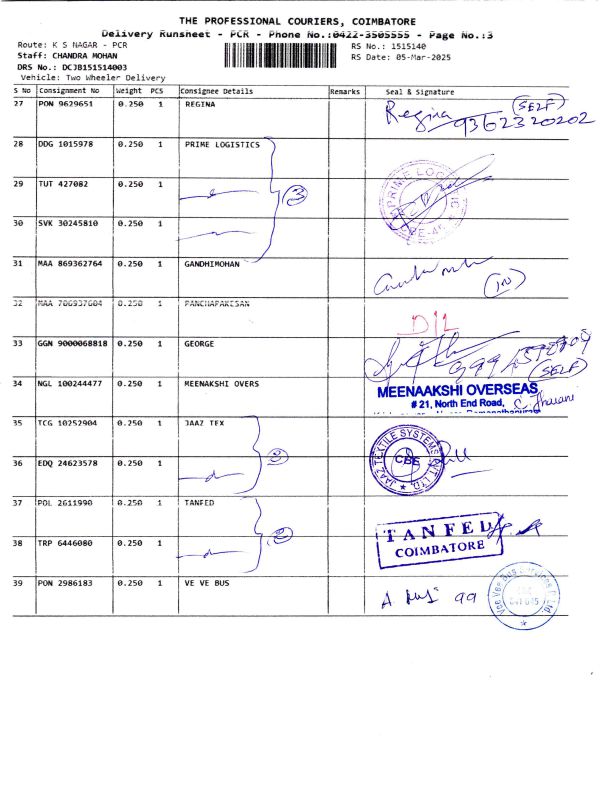 THE PROFESSIONAL COURIERS, COIMBATORE
Delivery Runsheet - PCR - Phone No.:0422-3505555 - Page No.:3
Route: K S NAGAR - PCR
RS No.: 1515140
Staff: CHANDRA MOHAN
RS Date: 05-Mar-2025
DRS No.: DCJB151514003
Vehicle: Two Wheeler Delivery
S No Consignment No Weight PCS Consignee Details Remarks Seal & Signature
27 PON 9629651 0.250 1 REGINA Regina (SELF)
9362320202
28 DDG 1015978 0.250 1 PRIME LOGISTICS
29 TUT 427082 0.250 1 3 PRIME LOG
30 SVK 30245810 0.250 1
31 MAA 869362764 0.250 1 GANDHIMOHAN
32 MAA 706937604 0.250 1 PANCHAPAKISAN
D/L
33 GGN 9000068818 0.250 1 GEORGE
(SELF)
34 NGL 100244477 0.250 1 MEENAKSHI OVERS MEENAAKSHI OVERSEAS
# 21, North End Road,
35 TCG 10252904 0.250 1 JAAZ TEX JAAZ TEXTILE SYSTEMS PVT LTD.
CBE
36 EDQ 24623578 0.250 1 2
37 POL 2611990 0.250 1 TANFED TANFED
COIMBATORE
38 TRP 6446080 0.250 1 2
39 PON 2986183 0.250 1 VE VE BUS
99